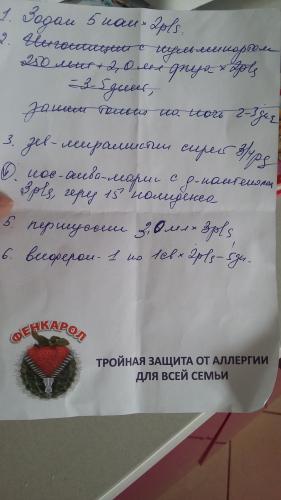 1. Зодак 5 кап × 2р/s
2. Ингаляции с пульмикортом
250 мкг + 2,0 мл физ × 2р/s
= 3-5 дней,
затем только на ночь 2-3 дня
3. зев - мирамистин спрей 3/4 р/s
4. нос - аква-марис с д-пантенолом
3р/s, через 15' полидекса
5. 3,0 мл × 3р/s
6. виферон - 1 по 1 св × 2р/s - 5 дн.
ФЕНКАРОЛ
ТРОЙНАЯ ЗАЩИТА ОТ АЛЛЕРГИИ
ДЛЯ ВСЕЙ СЕМЬИ